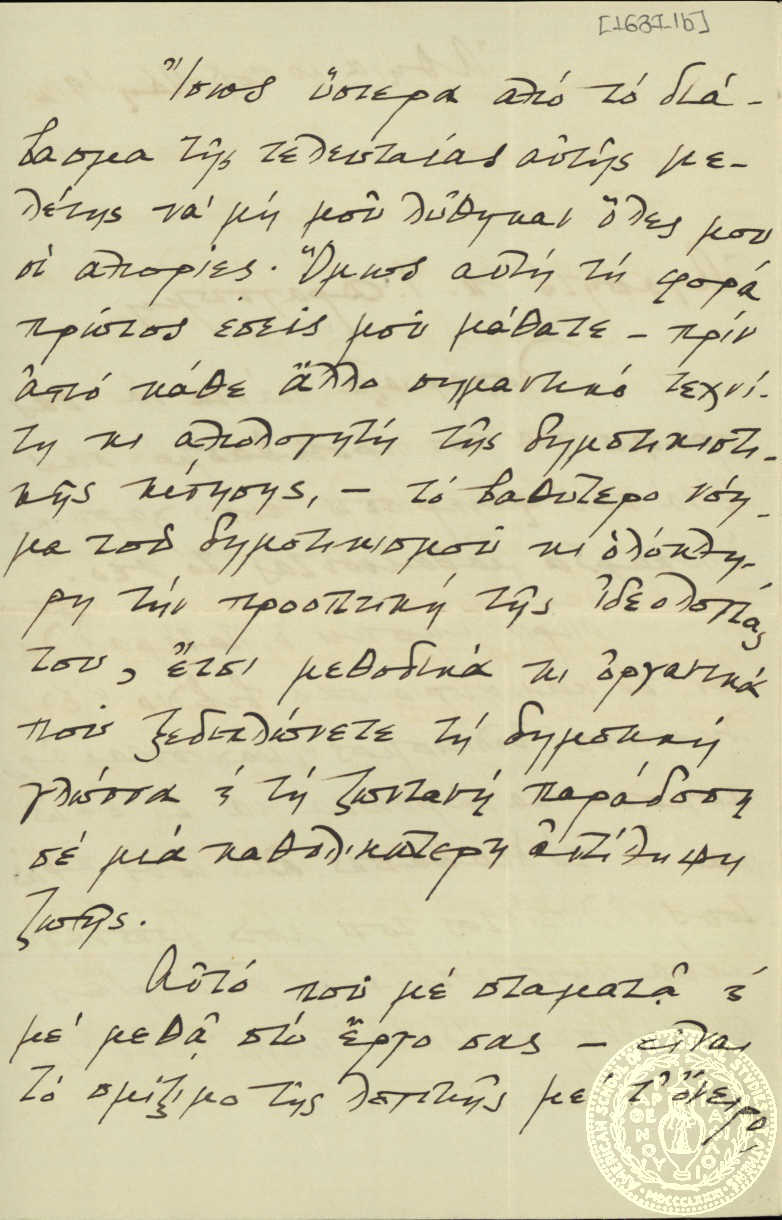 [1637-1b]
Ἴσως ὕστερα ἀπό τό διά-
βασμα τῆς τελευταίας αὐτῆς με-
λέτης νά μή μοῦ λύθηκαν ὅλες μου
οἱ ἀπορίες. Ὅμως αὐτή τή φορά
πρῶτος ἐσεῖς μοῦ μάθατε – πρίν
ἀπό κάθε ἄλλο σημαντικό τεχνί-
τη κι ἀπολογητή τῆς δημοτικιστι-
κῆς κίνησης, – τό βαθύτερο νόη-
μα τοῦ δημοτικισμοῦ κι ὁλόκλη-
ρη τήν προοπτική τῆς ἰδεολογίας
του, ἔτσι μεθοδικά κι ὀργανικά
πού ξεδιπλώνετε τή δημοτική
γλῶσσα ϗ τή ζωντανή παράδοση
σέ μιά καθολικώτερη ἀντίληψη
ζωῆς.
Αὐτό πού μέ σταματᾷ ϗ
μέ μεθᾷ στό ἔργο σας – εἶναι
τό σμίξιμο τῆς λογικῆς μέ τ' ὄνειρο,
AMERICAN SCHOOL OF CLASSICAL STUDIES AT ATHENS
ΠΑΡΘΕΝΟΥ
MDCCCLXXXI